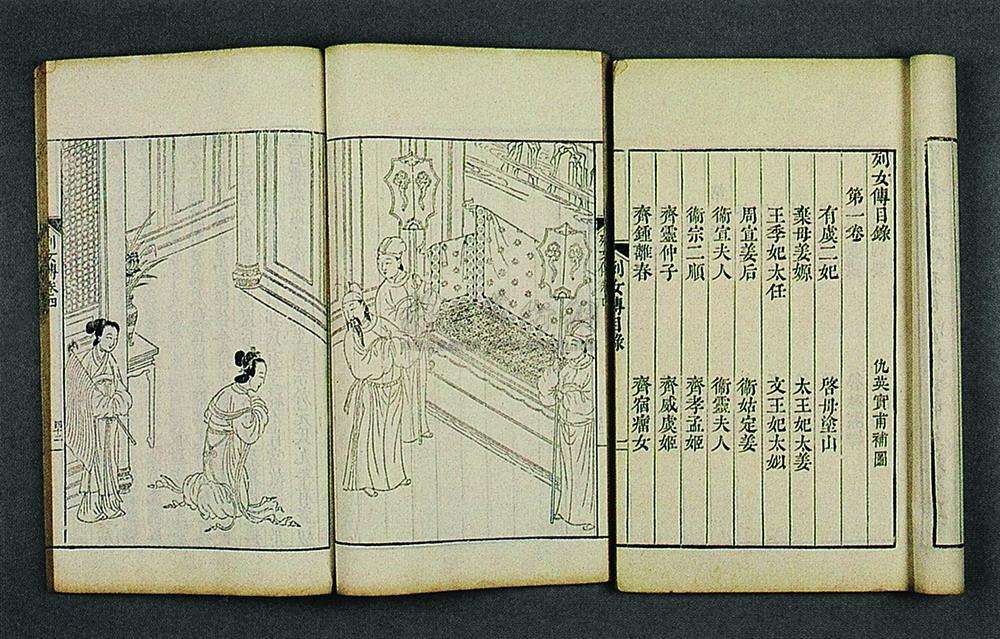 列女傳目錄
仇英實甫補圖
第一卷
有虞二妃 啓母塗山
棄母姜嫄 太王妃太姜
王季妃太任 文王妃太姒
周宣姜后 衛姑定姜
衛宣夫人 衛靈夫人
衛宗二順 齊孝孟姬
齊靈仲子 齊威虞姬
齊鍾離春 齊宿瘤女
列女傳目錄
一
列女傳卷四